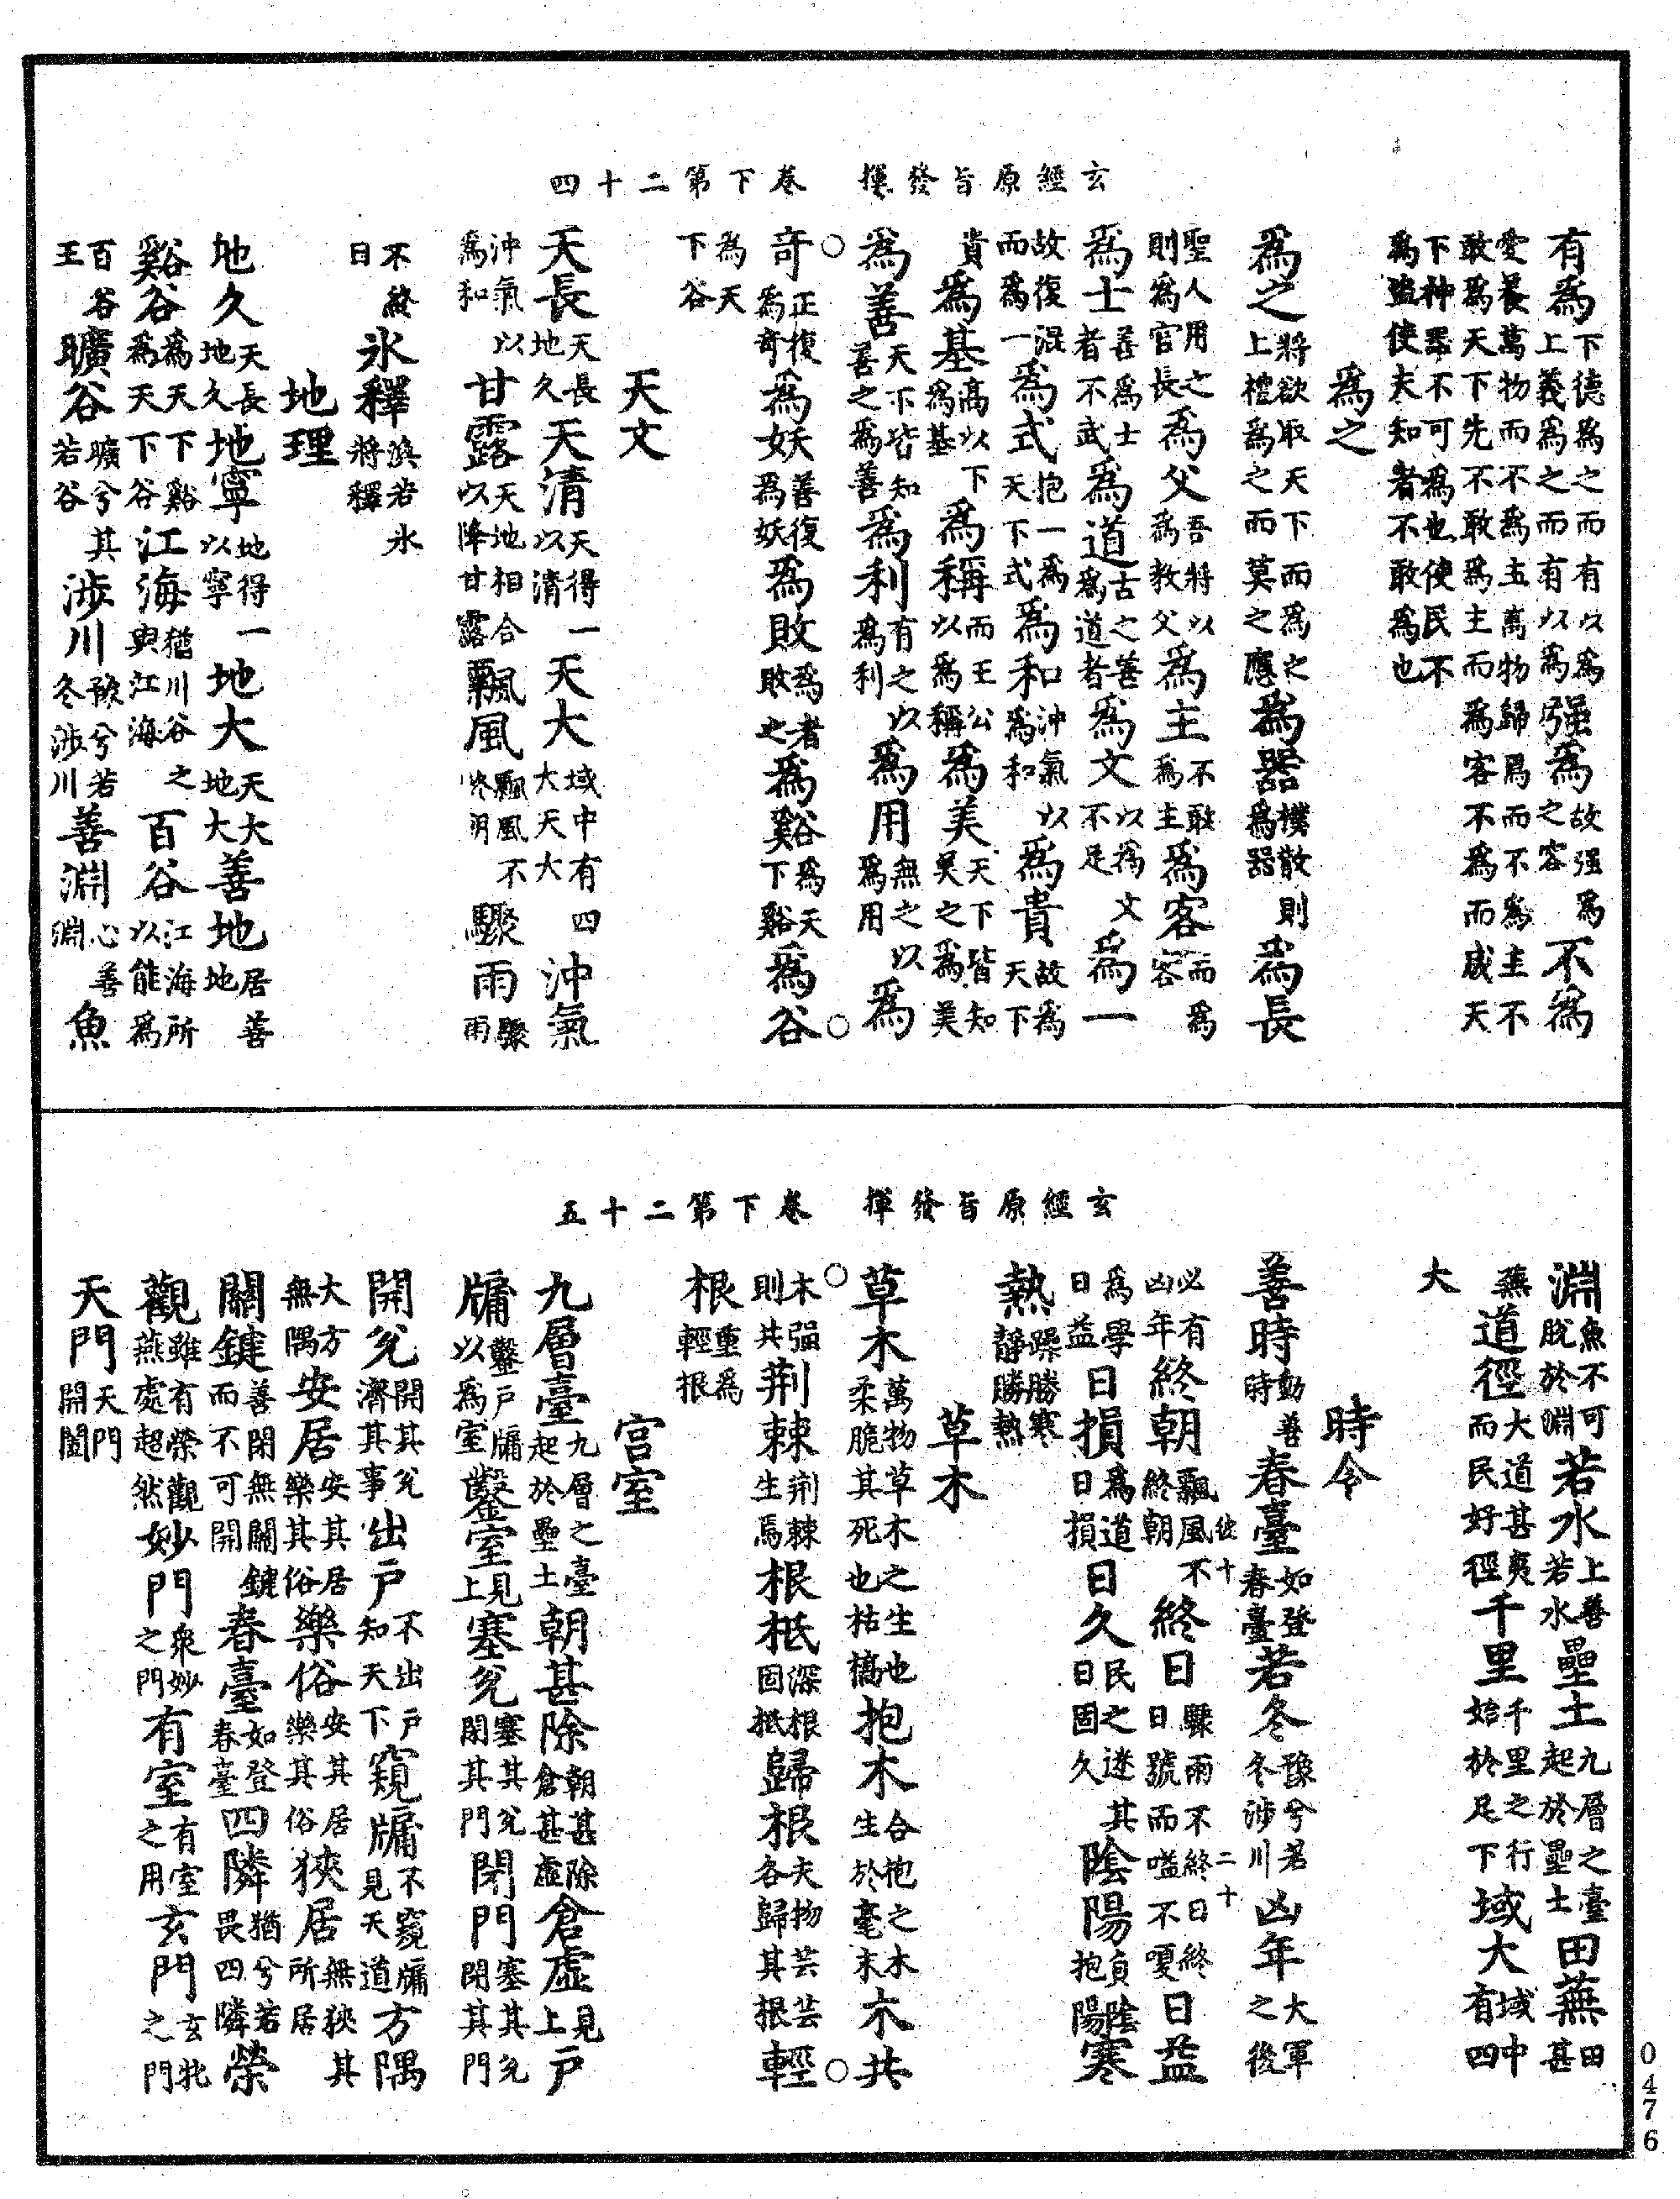 玄經原旨發揮 卷下第二十四
有為下德為之而有以為上義為之而有以為强為故强為之容不為
愛養萬物而不為主萬物歸焉而不為主不敢為天下先不敢為主而為客不為而成天
下神器不可為也使民不為盜使夫知者不敢為也
為之
為之將欲取天下而為之上禮為之而莫之應為器樸散則為器為長
聖人用之則為官長為父吾將以為教父為主不敢為主為客而為客
為士善為士者不武為道古之善為道者為文以為文不足為一
故復混而為一為式抱一為天下式為和沖氣以為和為貴故為天下
貴為基高以下為基為稱而王公以為稱為美天下皆知美之為美
為善天下皆知善之為善為利有之以為利為用無之以為用為
○奇正復為奇為妖善復為妖為敗為者敗之為谿為天下谿為谷○
為天下谷
天文
天長天長地久天清天得一以清天大域中有四大天大沖氣
沖氣以為和甘露天地相合以降甘露飄風飄風不終朝驟雨驟雨
不終日冰釋渙若冰將釋
地理
地久天長地久地寧地得一以寧地大天大地大善地居善地
谿谷為天下谿為天下谷江海猶川谷之與江海百谷江海所以能為
百谷王曠谷曠兮其若谷涉川豫兮若冬涉川善淵心善淵魚
玄經原旨發揮 卷下第二十五
淵魚不可脫於淵若水上善若水壘土九層之臺起於壘土田蕪田甚
蕪道徑大道甚夷而民好徑千里千里之行始於足下域大域中有四
大
時令
善時動善時春臺如登春臺若冬豫兮若冬涉川凶年大軍之後
彼十 二十
必有凶年終朝飄風不終朝終日驟雨不終日終日號而嗌不嗄日益
為學日益日損為道日損日久民之迷其日固久陰陽負陰抱陽寒
熱躁勝寒靜勝熱
草木
草木萬物草木之生也柔脆其死也枯槁抱木合抱之木生於毫末木共
○木强則共荆棘荆棘生焉根柢深根固柢歸根夫物芸芸各歸其根輕○
根重為輕根
宮室
九層臺九層之臺起於壘土朝甚除朝甚除倉甚虛倉虛見上戶
牖鑿戶牖以為室鑿室見上塞兌塞其兌閉其門閉門塞其兌閉其門
開兌開其兌濟其事出戶不出戶知天下窺牖不窺牖見天道方隅
大方無隅安居安其居樂其俗樂俗安其居樂其俗狹居無狹其所居
關鍵善閉無關鍵而不可開春臺如登春臺四隣猶兮若畏四隣榮
觀雖有榮觀燕處超然妙門衆妙之門有室有室之用玄門玄牝之門
天門天門開闔
0476